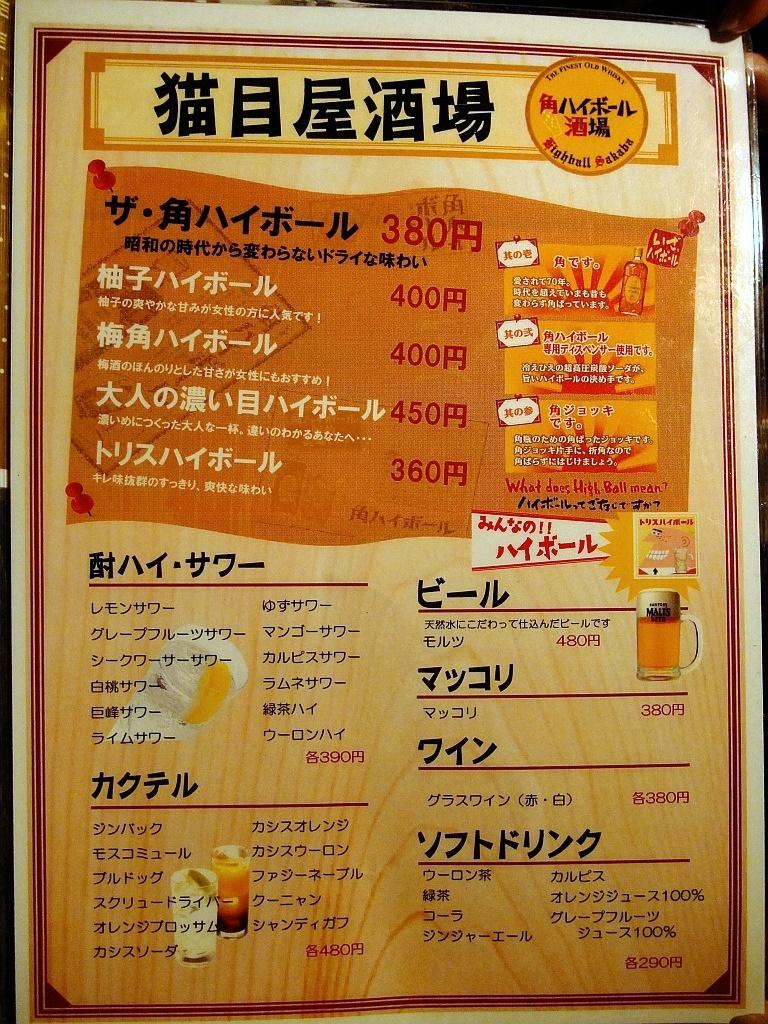 猫目屋酒場
THE FINEST OLD WHISKY
角ハイボール
酒場
Highball Sakaba
ザ・角ハイボール 380円
昭和の時代から変わらないドライな味わい
柚子ハイボール 400円
柚子の爽やかな甘みが女性の方に人気です!
梅角ハイボール 400円
梅酒のほんのりとした甘さが女性にもおすすめ!
大人の濃い目ハイボール 450円
濃いめにつくった大人な一杯。違いのわかるあなたへ・・・
トリスハイボール 360円
キレ味抜群のすっきり、爽快な味わい
角ハイボール
いざ、
ハイボール
其の壱
角です。
愛されて70年。
時代を超えていまも昔も
変わらず角ばっています。
其の弐
角ハイボール
専用ディスペンサー使用です。
冷えひえの超高圧炭酸ソーダが、
旨いハイボールの決め手です。
其の参
角ジョッキ
です。
角瓶のための角ばったジョッキです。
角ジョッキ片手に、折角なので
角ばらずにはじけましょう。
What does High Ball mean?
ハイボールってご存じですか?
みんなの!!
ハイボール
トリスハイボール
酎ハイ・サワー
レモンサワー ゆずサワー
グレープフルーツサワー マンゴーサワー
シークワーサーサワー カルピスサワー
白桃サワー ラムネサワー
巨峰サワー 緑茶ハイ
ライムサワー ウーロンハイ
各390円
カクテル
ジンバック カシスオレンジ
モスコミュール カシスウーロン
ブルドッグ ファジーネーブル
スクリュードライバー クーニャン
オレンジブロッサム シャンディガフ
カシスソーダ 各480円
ビール
天然水にこだわって仕込んだビールです
モルツ 480円
SUNTORY
MALT'S
BEER
マッコリ
マッコリ 380円
ワイン
グラスワイン（赤・白） 各380円
ソフトドリンク
ウーロン茶 カルピス
緑茶 オレンジジュース100%
コーラ グレープフルーツ
ジンジャーエール ジュース100%
各290円